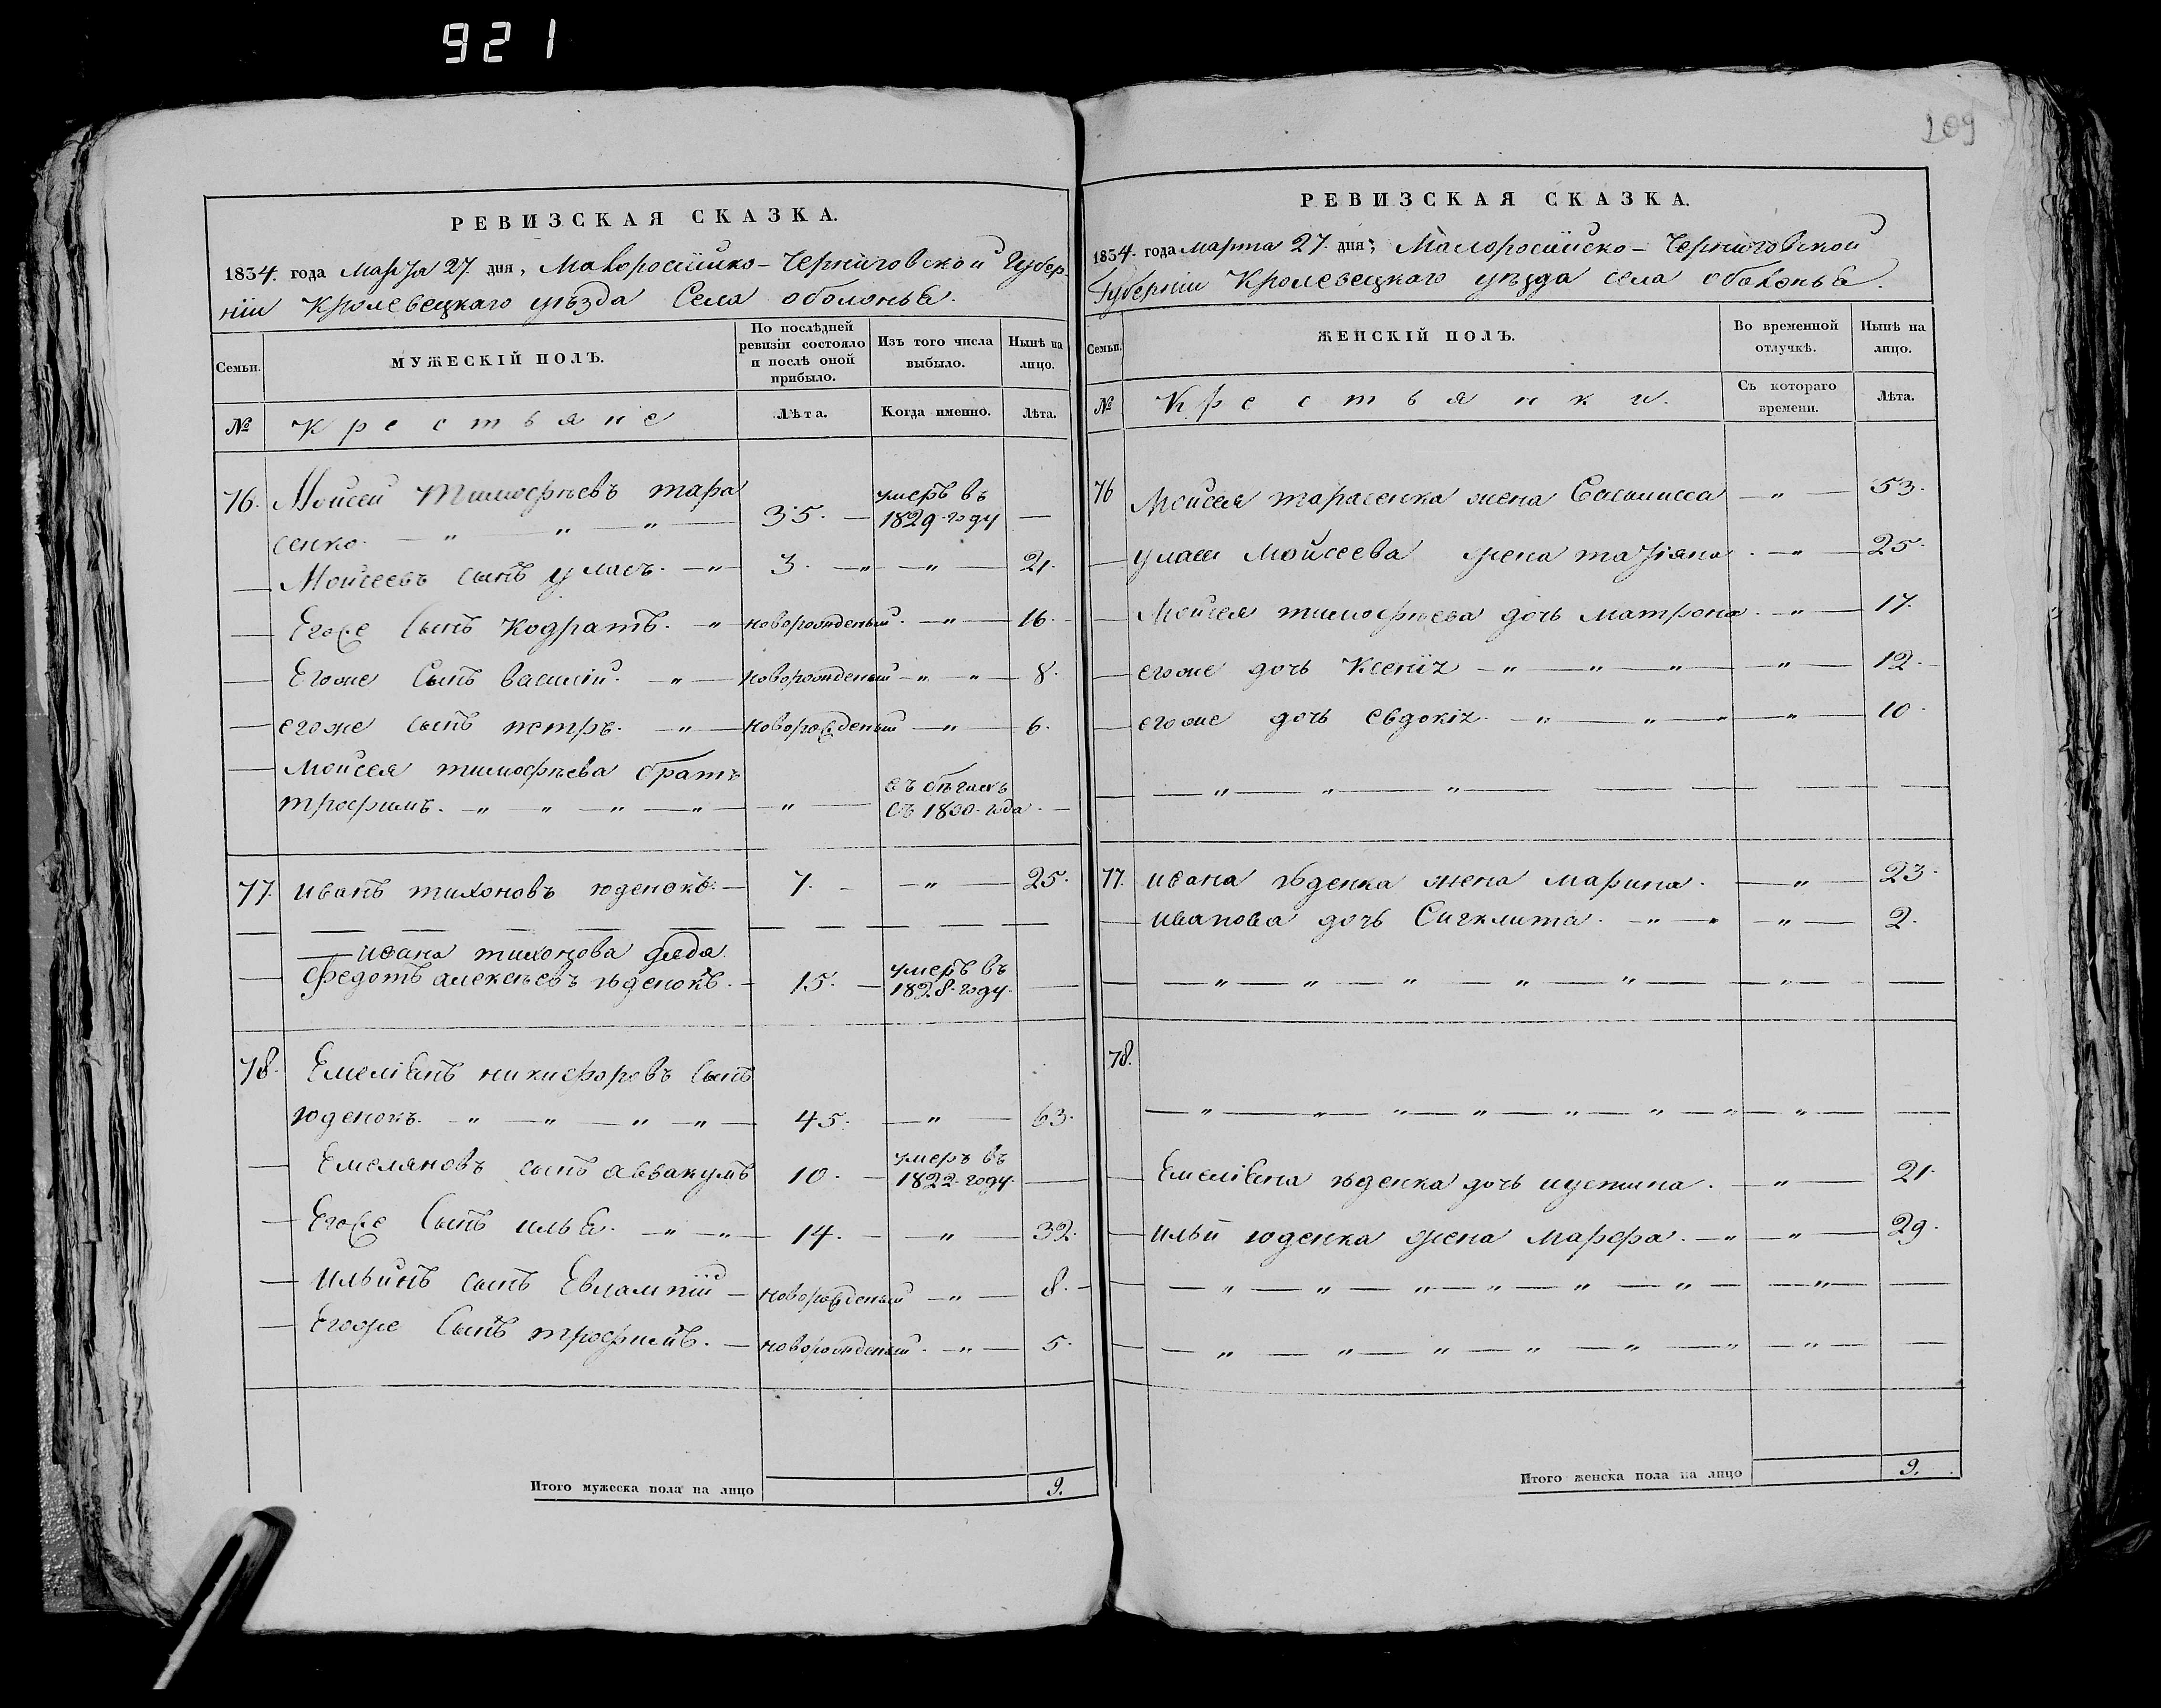 921
209
РЕВИЗСКАЯ СКАЗКА.
1834. года Марта 27. дня, Малоросiйско-Черниговской Губер-
нiи Кролевецкаго уѣзда Села оболонья.
Семьи.
МУЖЕСКІЙ ПОЛЪ.
По послѣдней ревизіи состояло и послѣ оной прибыло.
Изъ того числа выбыло.
Нынѣ на лицо.
№
Крестьяне
Лѣта.
Когда именно.
Лѣта.
76. Мойсей Тимофѣевъ тара
сенко. — " — " — 35. — умеръ въ 1829. году —
— Мойсеевъ сынъ уласъ. — " 3. — " — " — 21.
— Егоже Сынъ Кодратъ. — " новорожденый. — " — 16.
— Егоже Сынъ василiй. — " — новорожденый — " — " — 8.
— егоже сынъ петръ. — " — новорожденый — " — 6.
— Мойсея тимофѣева братъ
трофимъ. — " " — " — " — " — въ бѣгахъ съ 1800. года. —
77. иванъ тихоновъ юденокъ. — 7. — — " — 25.
— ивана тихонова дядя
— федотъ алексѣевъ юденокъ. — 15. — умеръ въ 1828. году. —
78. Емелiянъ никифоровъ сынъ
юденокъ. — " — " — " — " — 45. — " — 63.
— Емеляновъ сынъ аввакумъ 10. — умеръ въ 1822. году. —
— Егоже Сынъ илья. — " — " — 14. — — " — 32.
— Ильинъ сынъ Евлампiй — новорожденый — " — 8. —
— Егоже Сынъ трофимъ. — новорожденый. — " — 5.
Итого мужеска пола на лицо 9.
РЕВИЗСКАЯ СКАЗКА.
1834. года марта 27. дня; Малоросiйско-Черниговской
Губернiи Кролевецкаго уѣзда села оболонья.
Семьи.
ЖЕНСКІЙ ПОЛЪ.
Во временной отлучкѣ.
Нынѣ на лицо.
№
Крестьянки.
Съ котораго времени.
Лѣта.
76 Мойсея тарасенка жена — " — 53.
— уласа Мойсеева жена татiяна. — " — 25.
— Мойсея тимофѣева дочь матрона. — " — 17.
— егоже дочь Ксенiя — " — " — " — " — 12.
— егоже дочь евдокiя. — " — " — " — " — 10.
— — " — " — " — — — — —
77. ивана юденка жена марина. — " — 23.
— иванова дочь Сигклита. — " — " — " — 2.
— — " — " — " — " — " — " — —
78.
— " — " — " — " — " — " — " — " — —
— Емелiяна юденка дочь иустина. — " — 21.
— ильи юденка жена марфа. — " — " — 29.
— — " — " — " — " — " — " — — " — —
— — " — " — " — " — " — " — " — —
Итого женска пола на лицо 9.